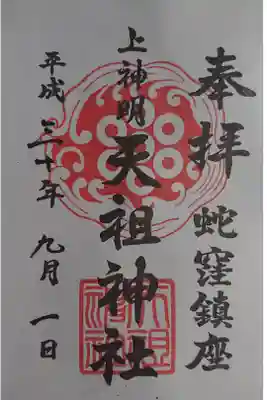 奉拝 蛇窪鎮座
上神明 天祖神社
平成三十年 九月 一日